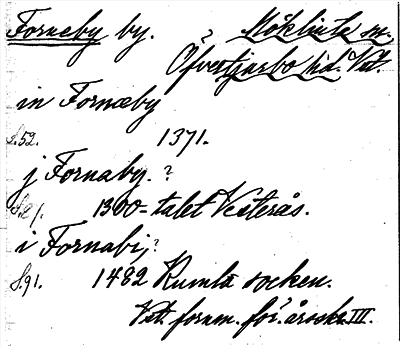 Forneby by. Möklinta sn.
Öfvertjurbo hd. Vst.
in Fornæby
S. 52. 1371.
j Fornaby. ?
S. 21. 1300-talet Vesterås.
i Fornabij ?
S. 91. 1482 Rumla socken.
Vst. fornm. för. årsskr. III.